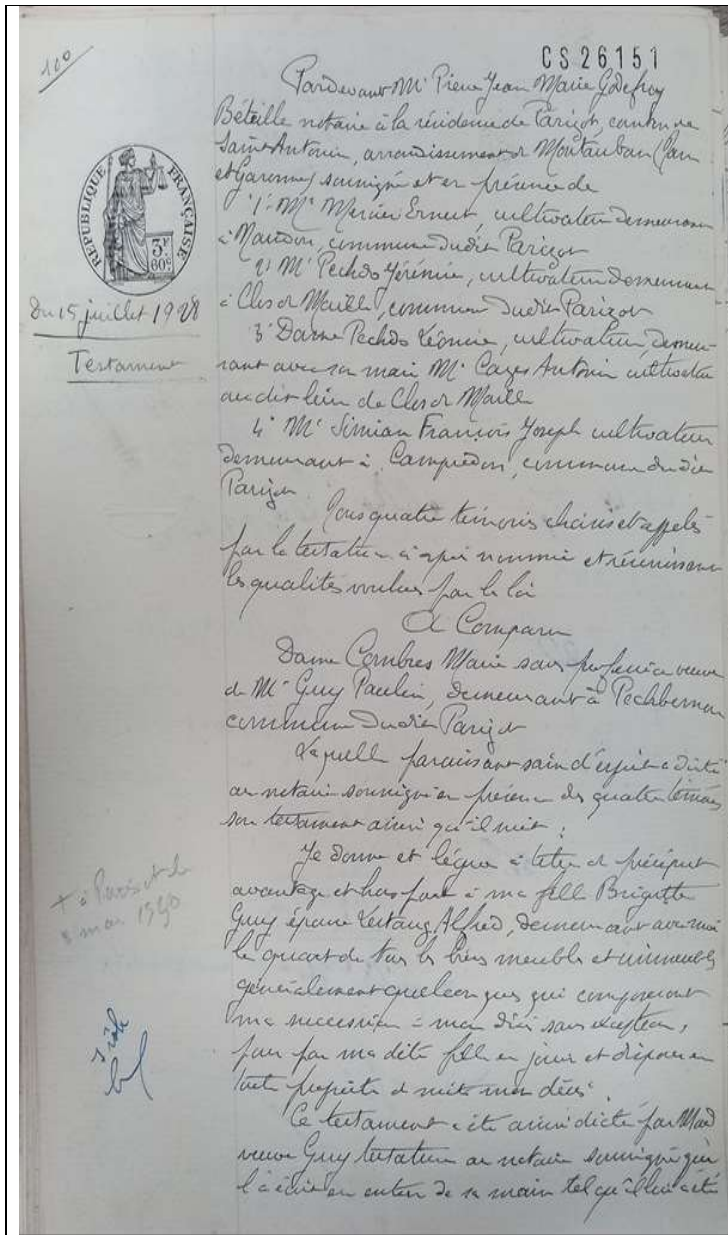 100
CS 26151
Pardevant Me Pierre Jean Marie Godefroy
Béteille notaire à la résidence de Parizot, canton de
Saint Antonin, arrondissement de Montauban (Tarn
et Garonne) soussigné et en présence de
1° Mr Mercier Ernest, cultivateur demeurant
à commune dudit Parizot
2° Mr Pechdo Jérémie, cultivateur demeurant
à Clos de Maille, commune dudit Parizot
3° Dame Pechdo Léonie, cultivateur, demeu-
rant avec son mari Mr Cazes Antonin cultivateur
au dit lieu de Clos de Maille
4° Mr Simian François Joseph cultivateur
demeurant à Campredon, commune dudit
Parizot
Tous quatre témoins choisis et appelés
par la testatrice ci après nommée et réunissant
les qualités voulues par la loi
A Comparu
Dame Combres Marie sans profession veuve
de Mr Guy Paulin, demeurant à
commune dudit Parizot
Laquelle paraissant saine d'esprit a dicté
au notaire soussigné en présence des quatre témoins
son testament ainsi qu'il suit :
Je donne et lègue à titre de préciput
avantage et hors part à ma fille Brigitte
Guy épouse Alfred, demeurant avec moi
le quart de tous les biens meubles et immeubles
généralement quelconques qui composeront
ma succession à mon décès sans exception,
pour par ma dite fille en jouir et disposer en
toute propriété de suite mon décès.
Ce testament a été ainsi dicté par Mad
veuve Guy testatrice au notaire soussigné qui
l'a écrit en entier de sa main tel qu'il lui a été
REPUBLIQUE FRANÇAISE
3F
60c
Du 15 juillet 1928
Testament
+ à Parizot le
8 mai
1 rôle